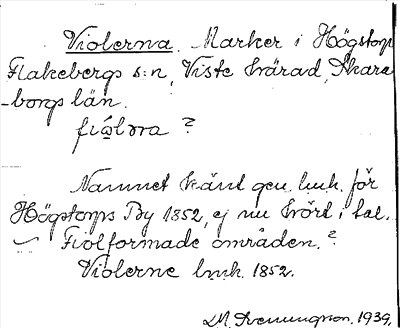 Violerna. Marker i Högstorp
Flakebergs s:n, Viste härad, Skara
-borgs län.
fiω̣lɔra ?
Namnet känt gen. lmh. för
Högstorps By 1852, ej nu hört i tal.
Fiolformade områden. ?
Violerne lmh. 1852.
1939.